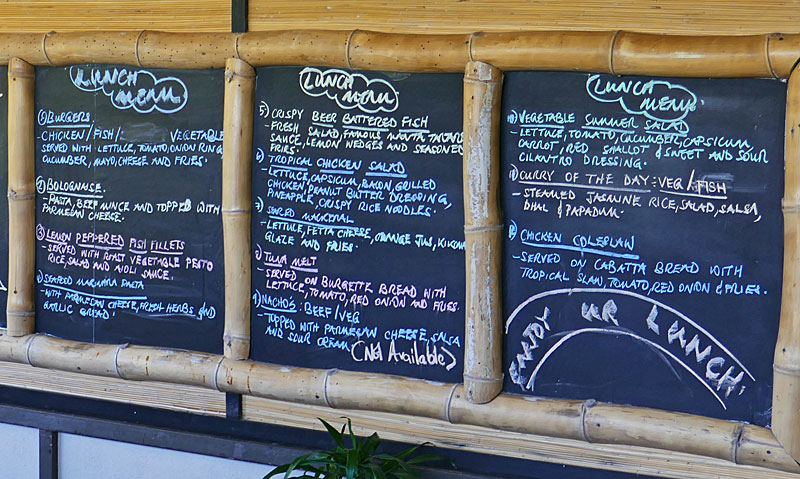 LUNCH
MENU
① BURGERS
- CHICKEN/FISH/: VEGETABLE
SERVED WITH LETTUCE, TOMATO, ONION RING
CUCUMBER, MAYO, CHEESE AND FRIES.
② BOLOGNAISE.
- PASTA, BEEF MINCE AND TOPPED WITH
PARMESAN CHEESE.
③ LEMON PEPPERED FISH FILLETS
- SERVED WITH ROAST VEGETABLE PESTO
RICE, SALAD AND AIOLI SAUCE.
SEAFOOD MARINARA PASTA
- WITH PARMESAN CHEESE, FRESH HERBS AND
GARLIC BREAD.
LUNCH
MENU
5) CRISPY BEER BATTERED FISH
- FRESH SALAD, FAMOUS TARTARE
SAUCE, LEMON WEDGES AND SEASONED
FRIES.
TROPICAL CHICKEN SALAD
- LETTUCE, CAPSICUM, BACON, GRILLED
CHICKEN, PEANUT BUTTER DRESSING,
PINEAPPLE, CRISPY RICE NOODLES.
SEARED MACKEREL
- LETTUCE, FETTA CHEESE, ORANGE JUS,
GLAZE AND FRIES.
TUNA MELT
- SERVED ON BURGETTE BREAD WITH
LETTUCE, TOMATO, RED ONION AND FRIES.
NACHO'S : BEEF/VEG
- TOPPED WITH PARMESAN CHEESE, SALSA
AND SOUR CREAM
(Not Available)
LUNCH
MENU
⑩ VEGETABLE SUMMER SALAD
- LETTUCE, TOMATO, CUCUMBER, CAPSICUM,
CARROT, RED SHALLOT & SWEET AND SOUR
CILANTRO DRESSING.
⑪ CURRY OF THE DAY: VEG/FISH
- STEAMED JASMINE RICE, SALAD, SALSA,
DHAL & PAPADUM.
CHICKEN COLESLAW
- SERVED ON CABATTA BREAD WITH
TROPICAL SLAW, TOMATO, RED ONION & FRIES.
ENJOY UR LUNCH!